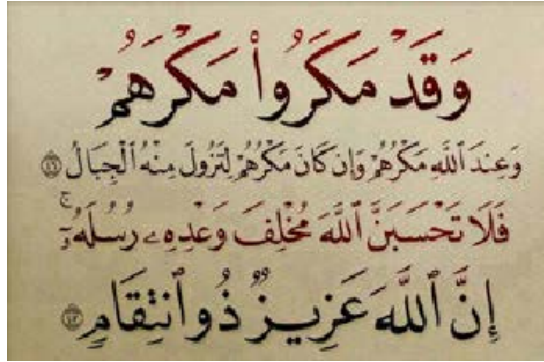 وَقَدْ مَكَرُوا۟ مَكْرَهُمْ
وَعِندَ ٱللَّهِ مَكْرُهُمْ وَإِن كَانَ مَكْرُهُمْ لِتَزُولَ مِنْهُ ٱلْجِبَالُ ۝٤٦
فَلَا تَحْسَبَنَّ ٱللَّهَ مُخْلِفَ وَعْدِهِۦ رُسُلَهُۥٓ ۚ
إِنَّ ٱللَّهَ عَزِيزٌ ذُو ٱنتِقَامٍ ۝٤٧